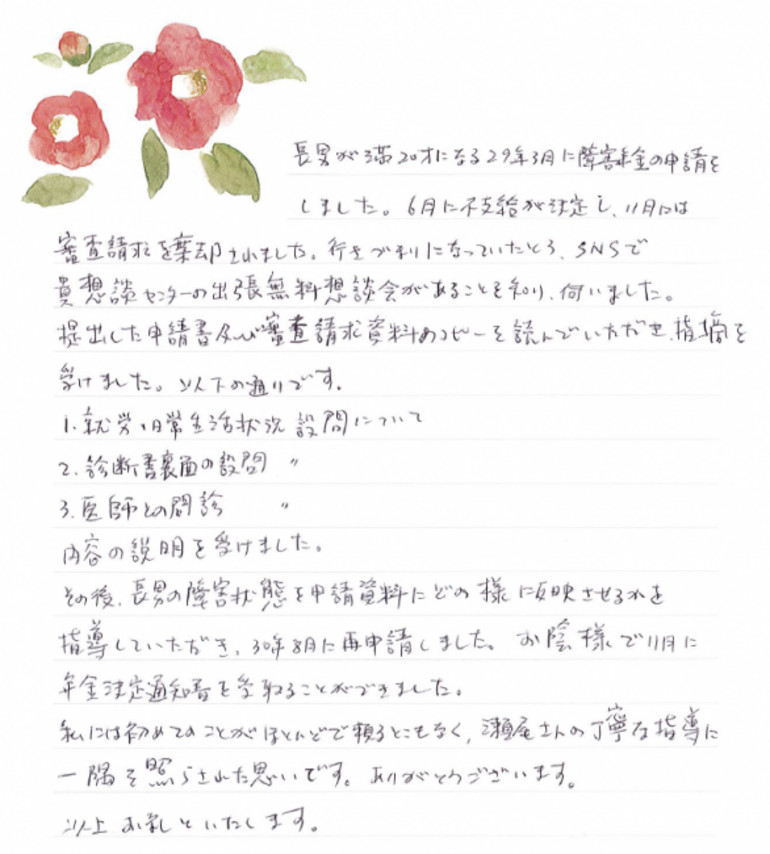 長男が満20才になる29年3月に障害年金の申請を
しました。6月に不支給が決定し、11月には
審査請求を棄却されました。行きづまりになっていたところ、SNSで
貴想談センターの出張無料想談会があることを知り、伺いました。
提出した申請書及び審査請求資料のコピーを読んでいただき、指摘を
受けました。以下の通りです。
1. 就労・日常生活状況 設問について
2. 診断書裏面の設問 〃
3. 医師との問診 〃
内容の説明を受けました。
その後、長男の障害状態を申請資料にどの様に反映させるかを
指導していただき、30年8月に再申請しました。お陰様で11月に
年金決定通知書を受取ることができました。
私には初めてのことがほとんどで頼るところもなく、瀬尾さんの丁寧な指導に
一隅を照らされた思いです。ありがとうございます。
以上 お礼といたします。